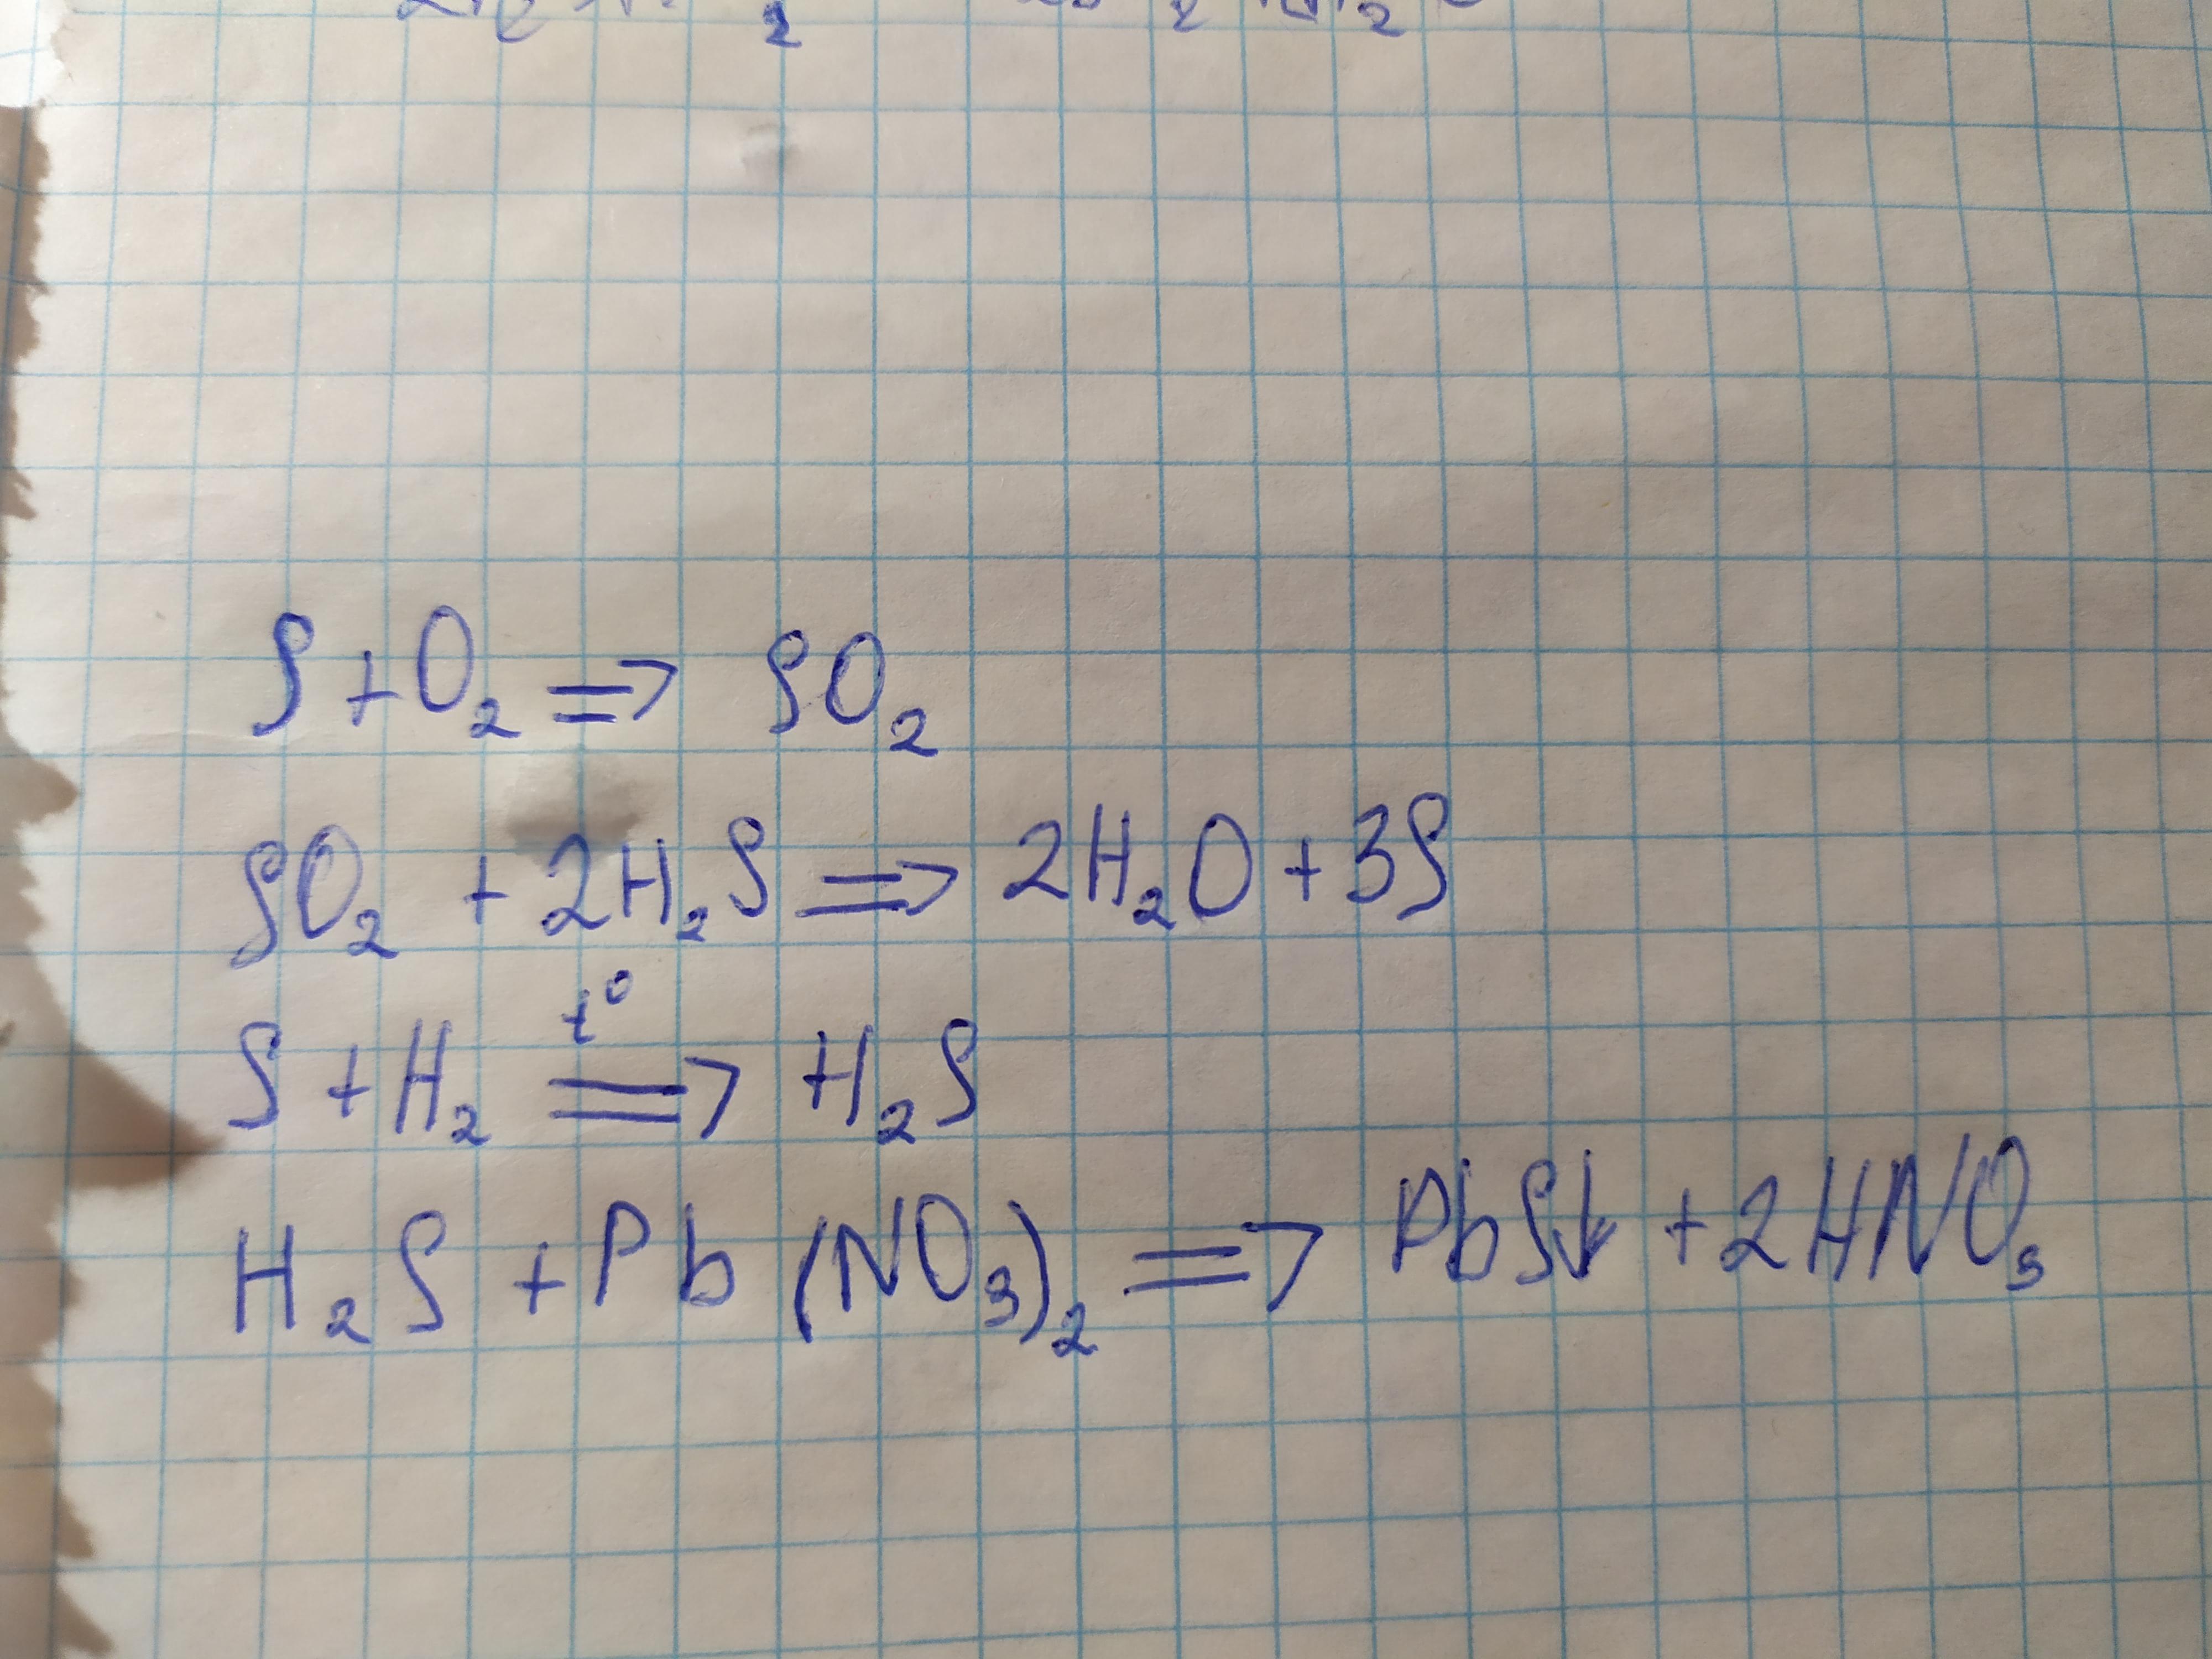 S + O₂ => SO₂
SO₂ + 2H₂S => 2H₂O + 3S
S + H₂ =t°=> H₂S
H₂S + Pb(NO₃)₂ => PbS↓ + 2HNO₃